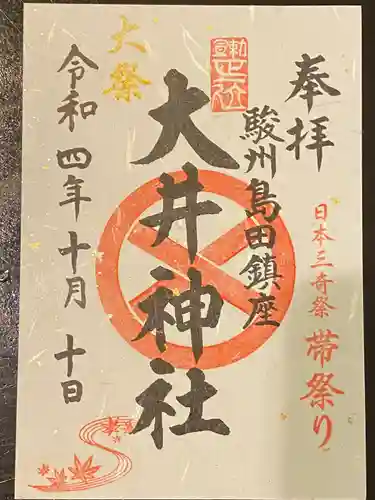 奉拝
日本三奇祭 帯祭り
駿州島田鎮座
大井神社
大祭
令和四年十月十日